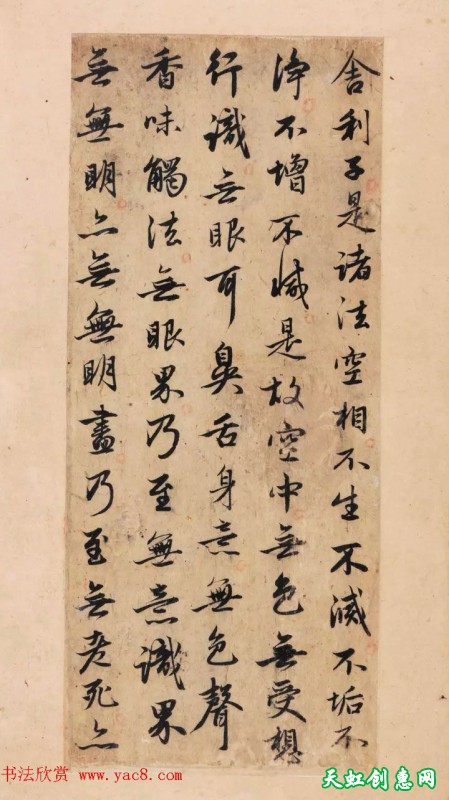 舍利子是诸法空相不生不滅不垢不
淨不增不減是故空中無色無受想
行識无眼耳鼻舌身意無色聲
香味觸法無眼界乃至無意識界
無無明亦無無明盡乃至無老死亦
书法欣赏 www.yac8.com
天虹创惠网